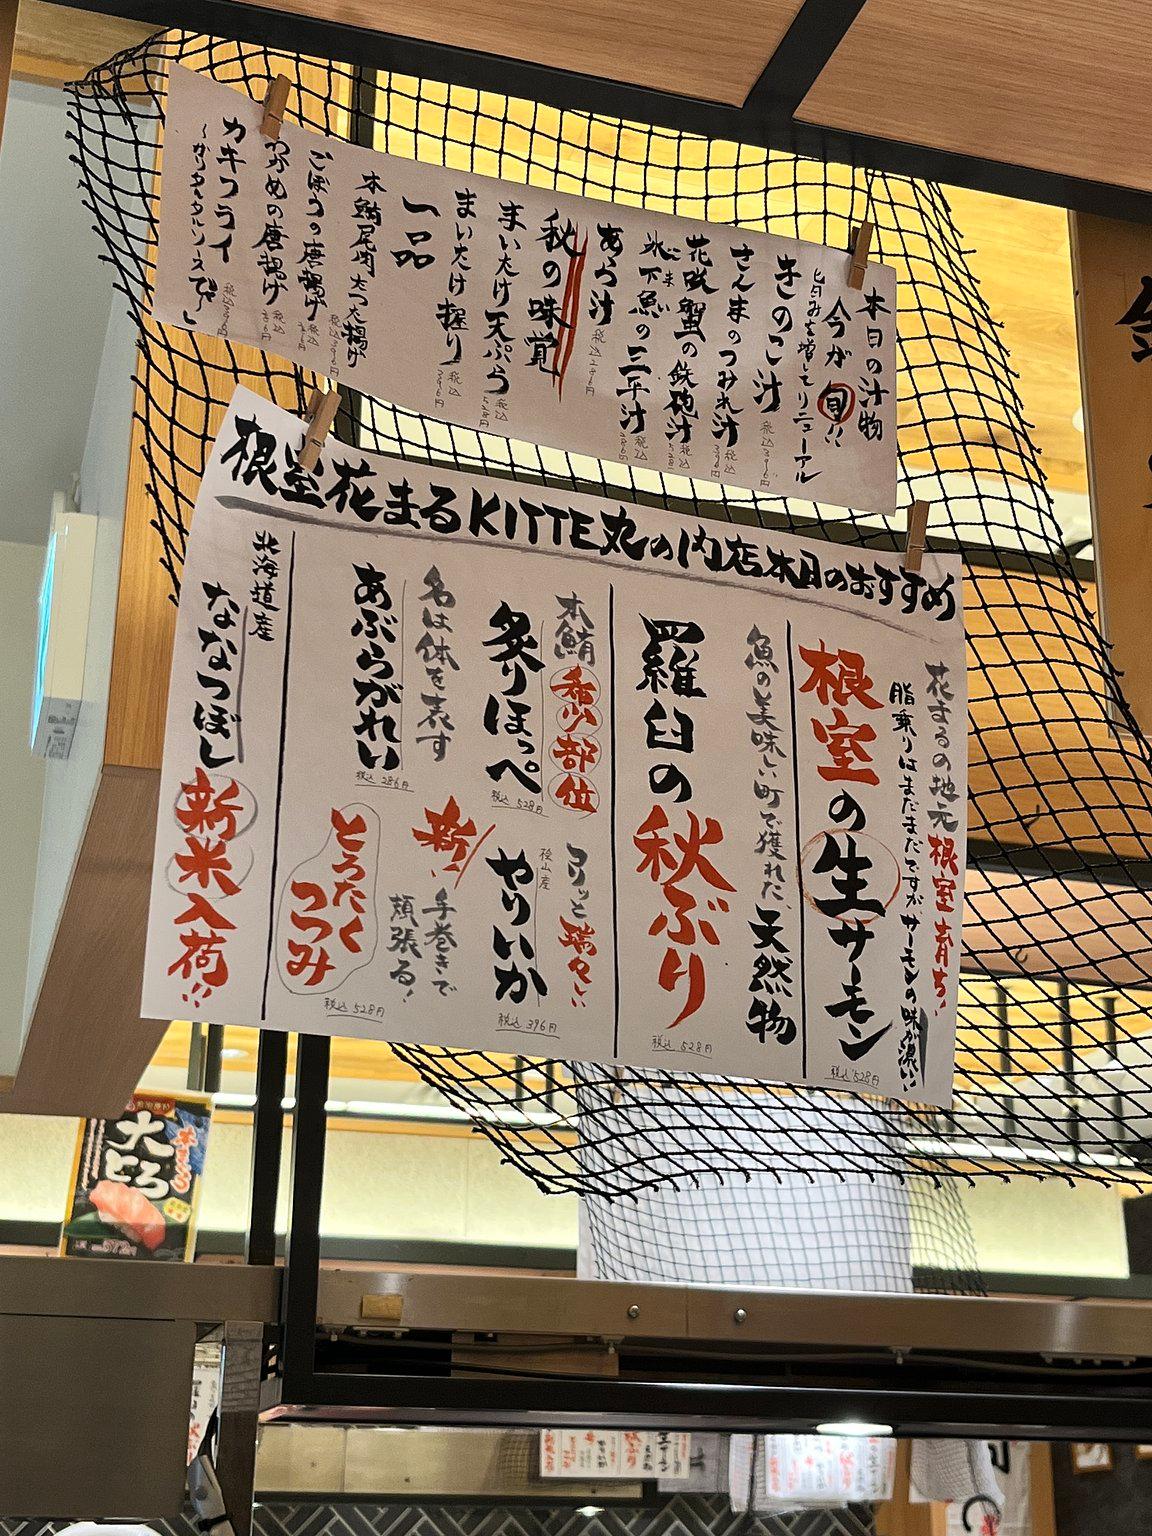 本日の汁物
今が旬!!
旨みを増してリニューアル
きのこ汁 税込396円
さんまのつみれ汁 税込396円
花咲蟹の鉄砲汁 税込528円
氷下魚の三平汁 税込286円
こまい
あら汁 税込286円
秋の味覚
まいたけ天ぷら 税込528円
まいたけ握り 税込396円
一品
本鮪尾肉たつた揚げ 税込396円
ごぼうの唐揚げ
わかめの唐揚げ
カキフライ 税込396円
根室花まるKITTE丸の内店本日のおすすめ
花まるの地元根室育ち!
脂乗りはまだまだですがサーモンの味が濃い!!
根室の生サーモン
税込528円
魚の美味しい町で獲れた、天然物
羅臼の秋ぶり
税込528円
本鮪希少部位
炙りほっぺ
税込528円
コリッと瑞々しい
桧山産
やりいか
税込396円
名は体を表す
あぶらがれい
税込286円
新!
手巻きで
頬張る!
とろたく
つつみ
税込528円
北海道産
ななつぼし
新米入荷!!
本まぐろ
大とろ